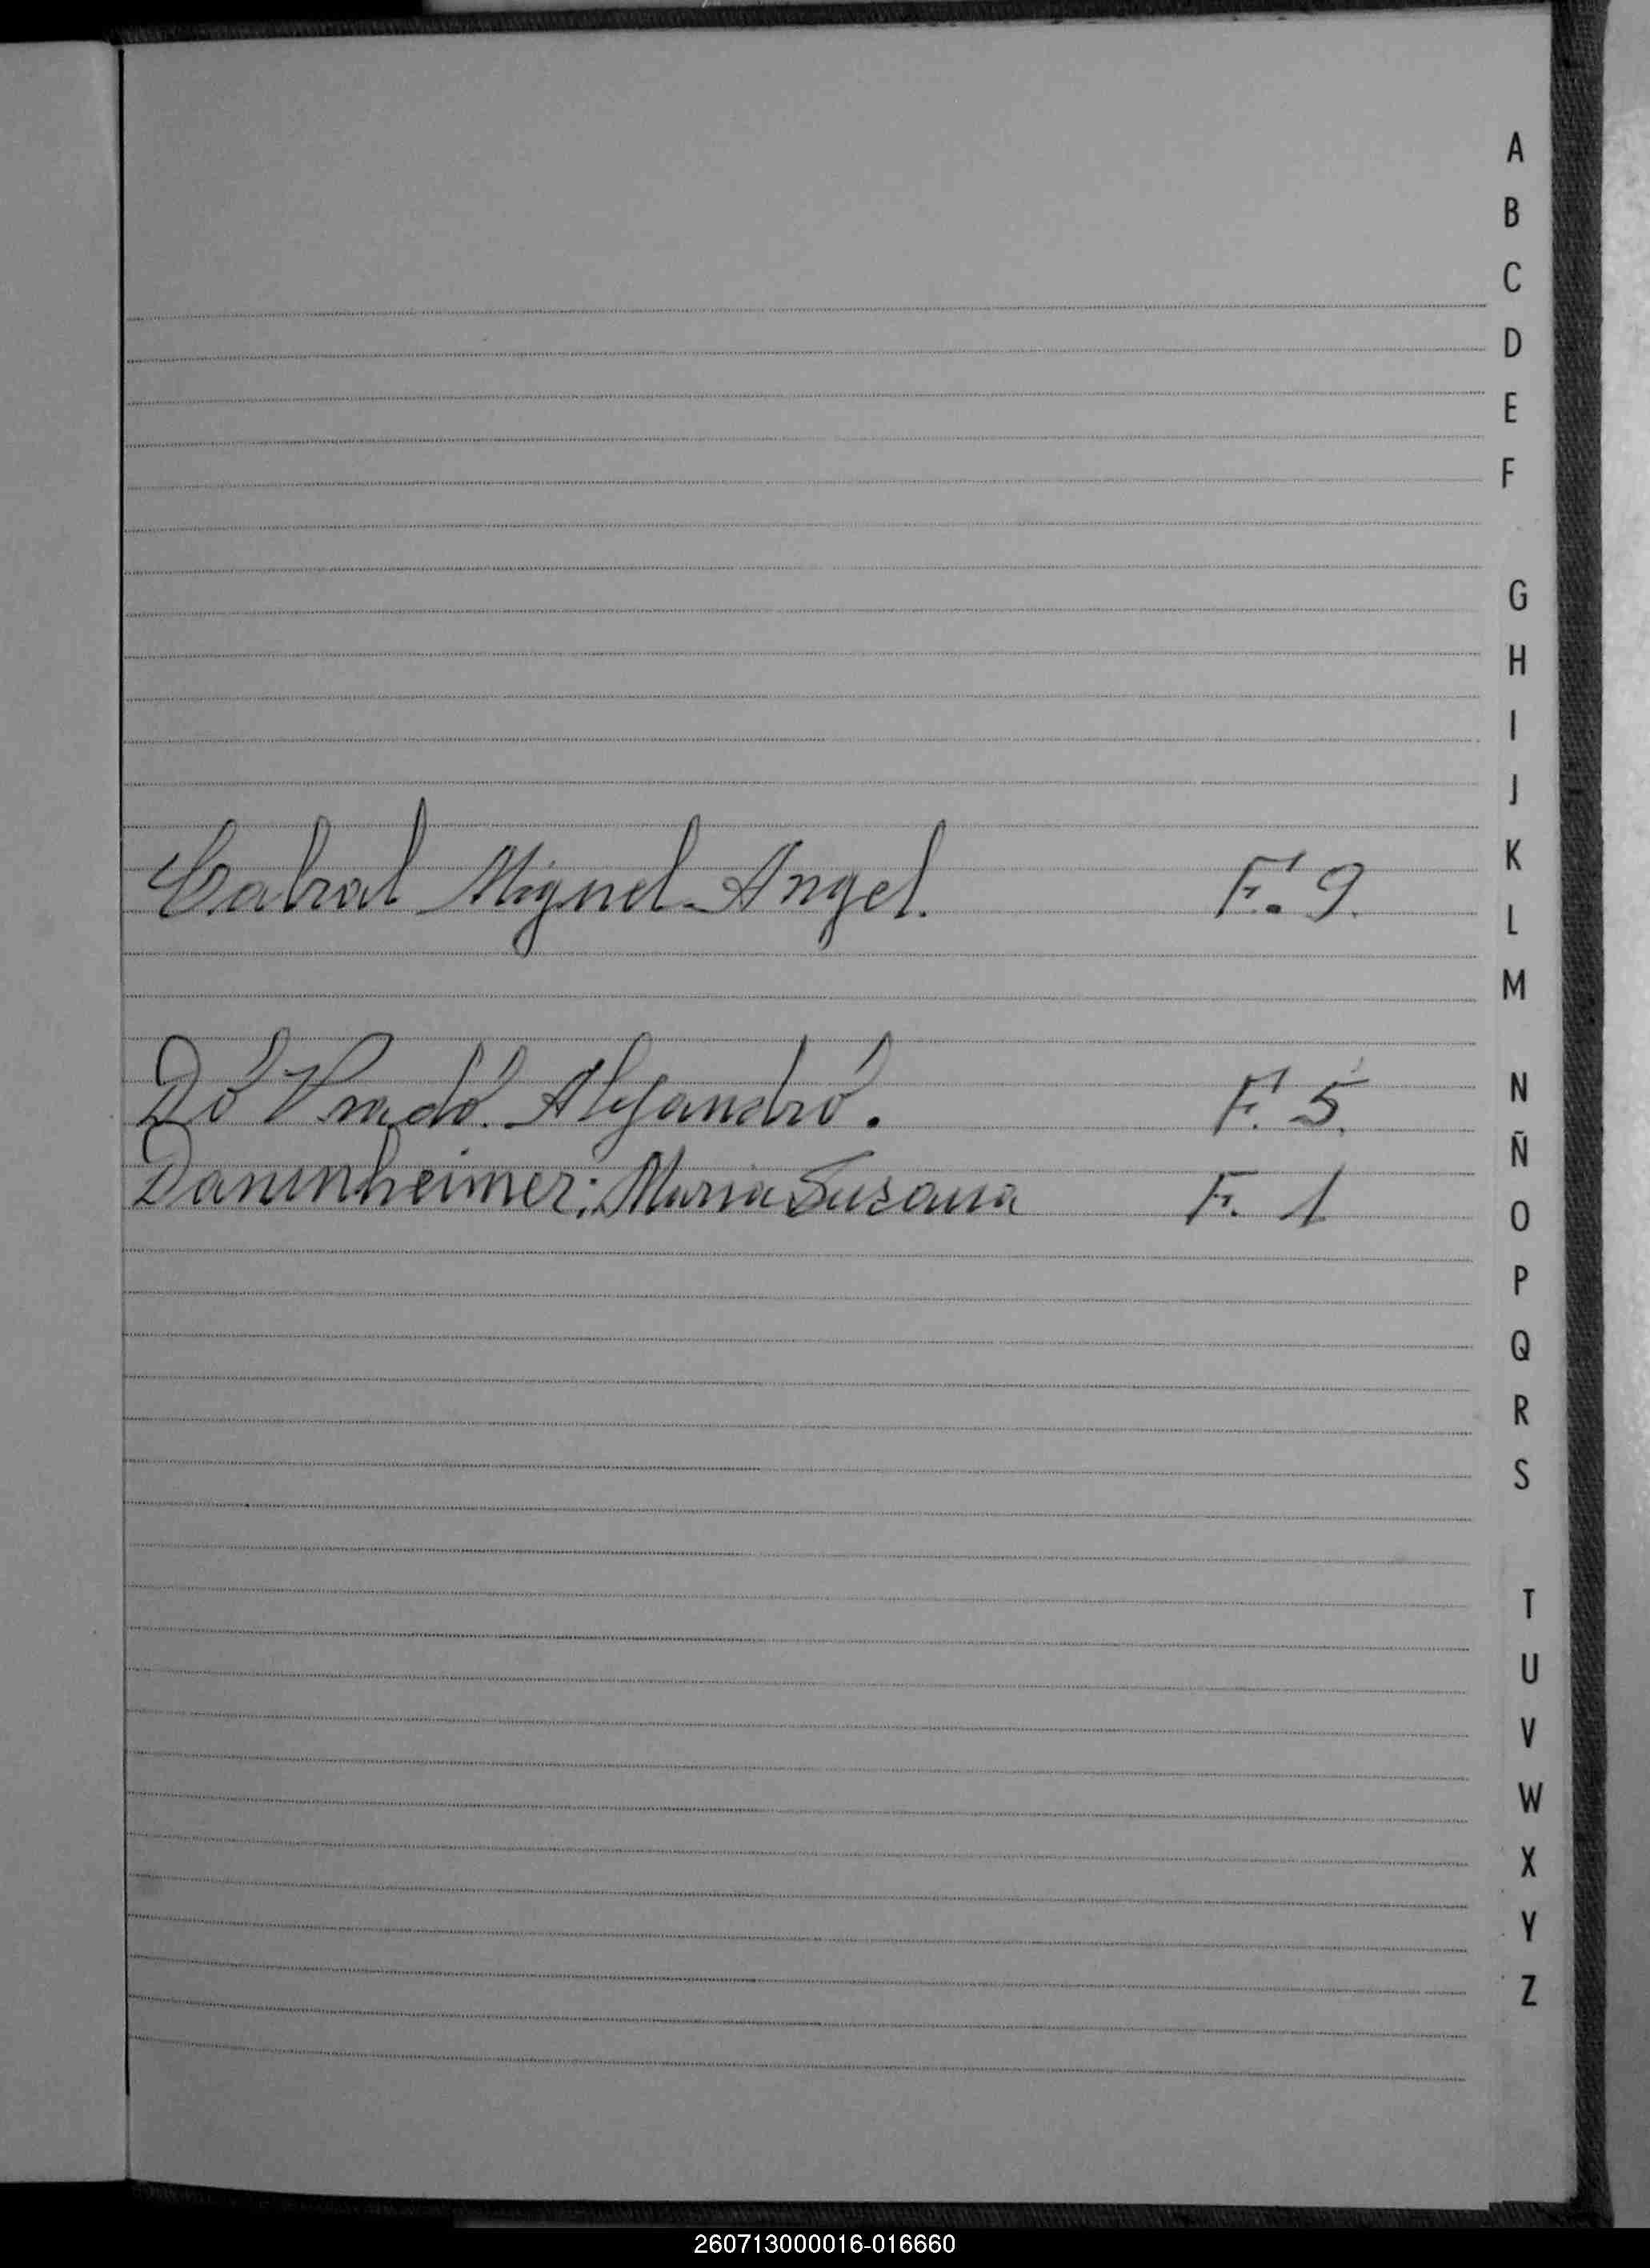 A
B
C
D
E
F
G
H
I
J
K
L
M
N
Ñ
O
P
Q
R
S
T
U
V
W
X
Y
Z
Cabral Miguel Angel. F. 9.
Do Prado. Alejandro. F. 5.
Dannnheimer; Maria Susana F. 1
260713000016-016660